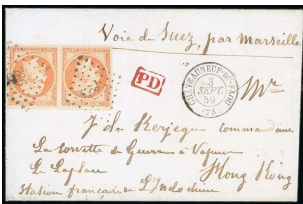 Voie de Suez, par Marseille
PD
CHATEAUNEUF-DU-FAOU
3
SEPT.
59
(28)
Mr
J. de Kerjégu commandant
La Corvette de Guerre à Vapeur
Le Laplace
Hong Kong
Station française de L'Indochine